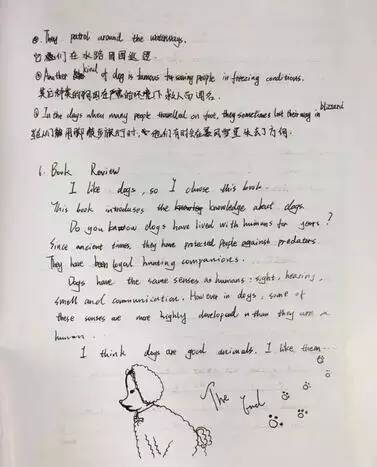 ③. They patrol around the waterways.
它们在水路周围巡逻
④ Another kind of dog is famous for saving people in freezing conditions.
其它种类的狗因在严寒的环境下救人而闻名.
⑤ In the days when many people travelled on foot, they sometimes lost their way in blizzard
人们 用脚 步旅行时, 他们有时会在暴风雪里失去了方向.
6. Book Review
I like dogs, so I choose this book.
This book introduces the knowledge about dogs.
Do you know dogs have lived with humans for years?
Since ancient times, they have protected people against predators.
They have been loyal hunting companions.
Dogs have the same senses as humans: sight, hearing,
smell and communication. However in dogs, some of
these senses are more highly developed than they are a
human.
I think dogs are good animals. I like them...
The End